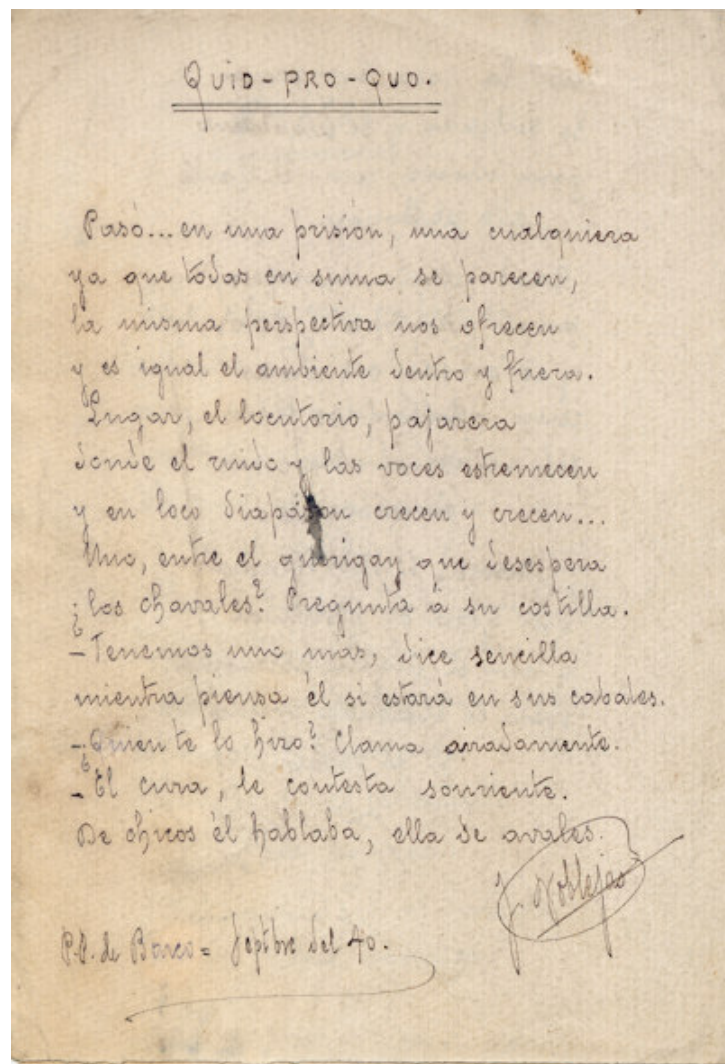 QUID-PRO-QUO.
Pasó... en una prisión, una cualquiera
ya que todas en suma se parecen,
la misma perspectiva nos ofrecen
y es igual el ambiente dentro y fuera.
Lugar, el locutorio, pajarera
donde el ruido y las voces estremecen
y en loco diapáson crecen y crecen...
Uno, entre el guirigay que desespera
¿los chavales? Pregunta á su costilla.
- Tenemos uno más, dice sencilla
mientra piensa él si estará en sus cabales.
-¿Quién te lo hizo? Clama airadamente.
- El cura, le contesta sonriente.
De chicos él hablaba, ella de avales.
J. Noblejas
P.P. de Barco = Septbre del 40.